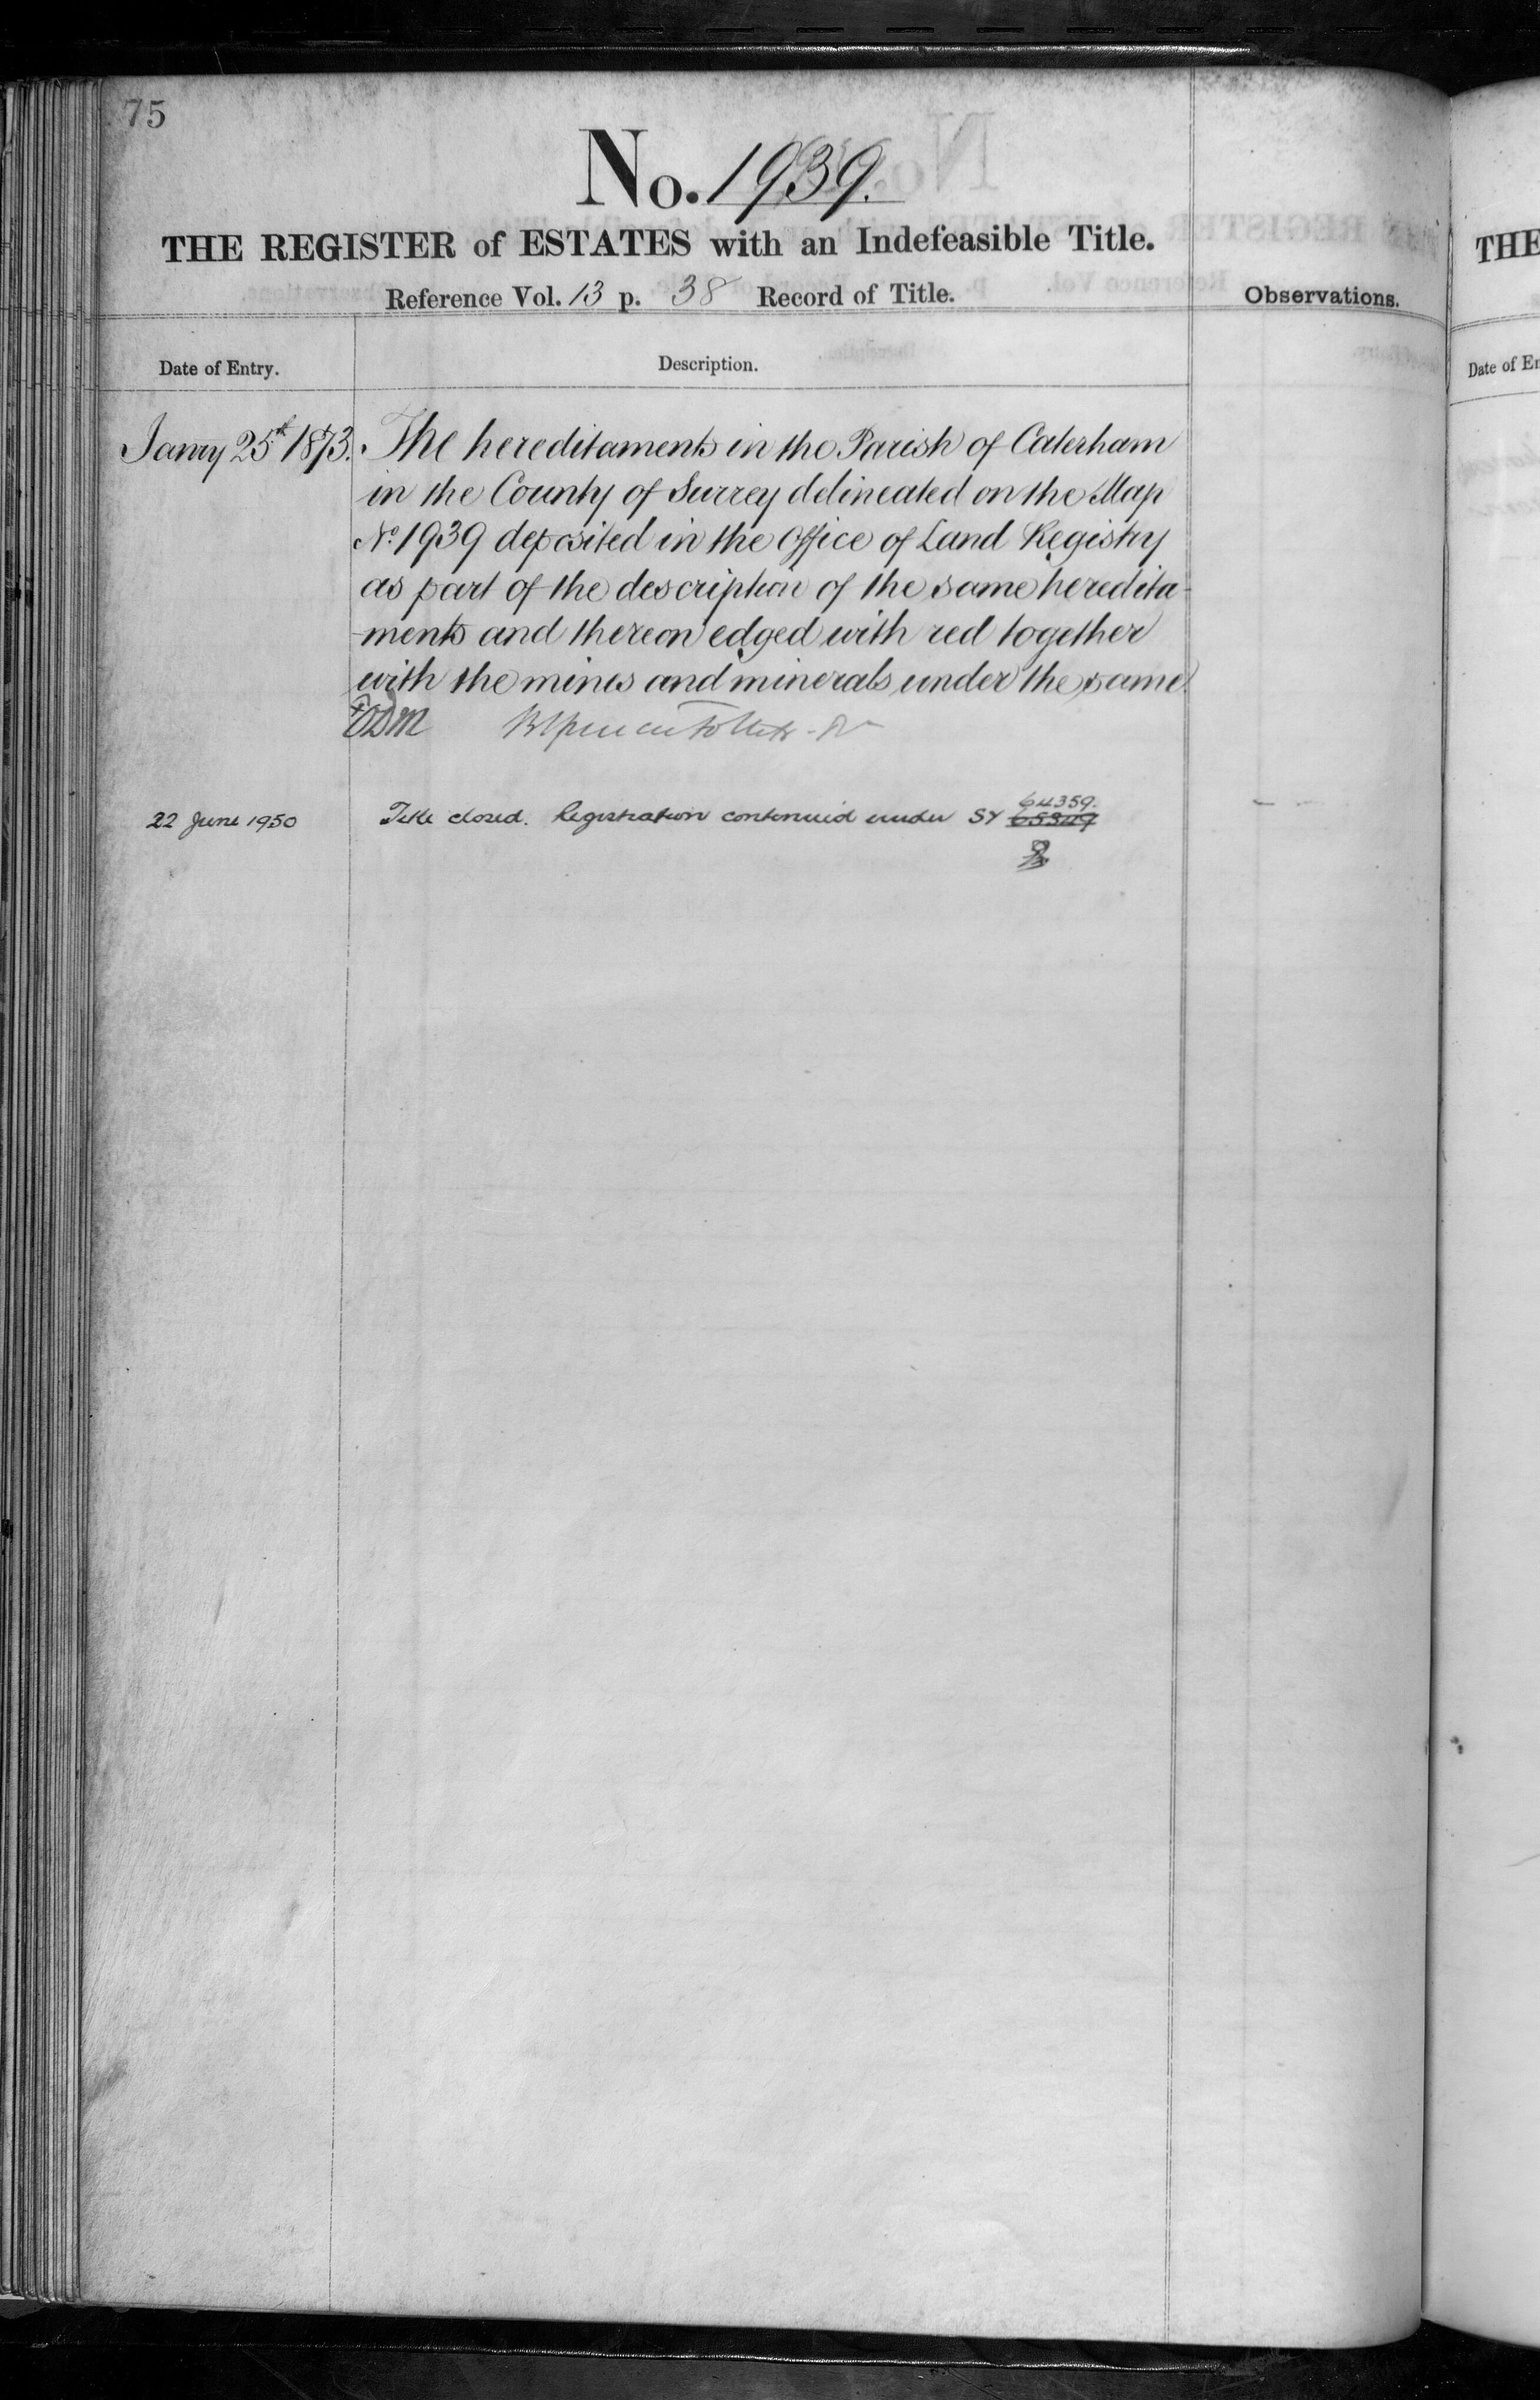 75
No. 1939.
THE REGISTER of ESTATES with an Indefeasible Title.
Reference Vol. 13 p. 38 Record of Title.
Observations.
Date of Entry.
Description.
Janry 25th 1873.
The hereditaments in the Parish of Caterham
in the County of Surrey delineated on the Map
No. 1939 deposited in the Office of Land Registry
as part of the description of the same heredita-
-ments and thereon edged with red together
with the mines and minerals under the same.
22 June 1950
Title closed. Registration continued under SY 64359.
THE
Date of En